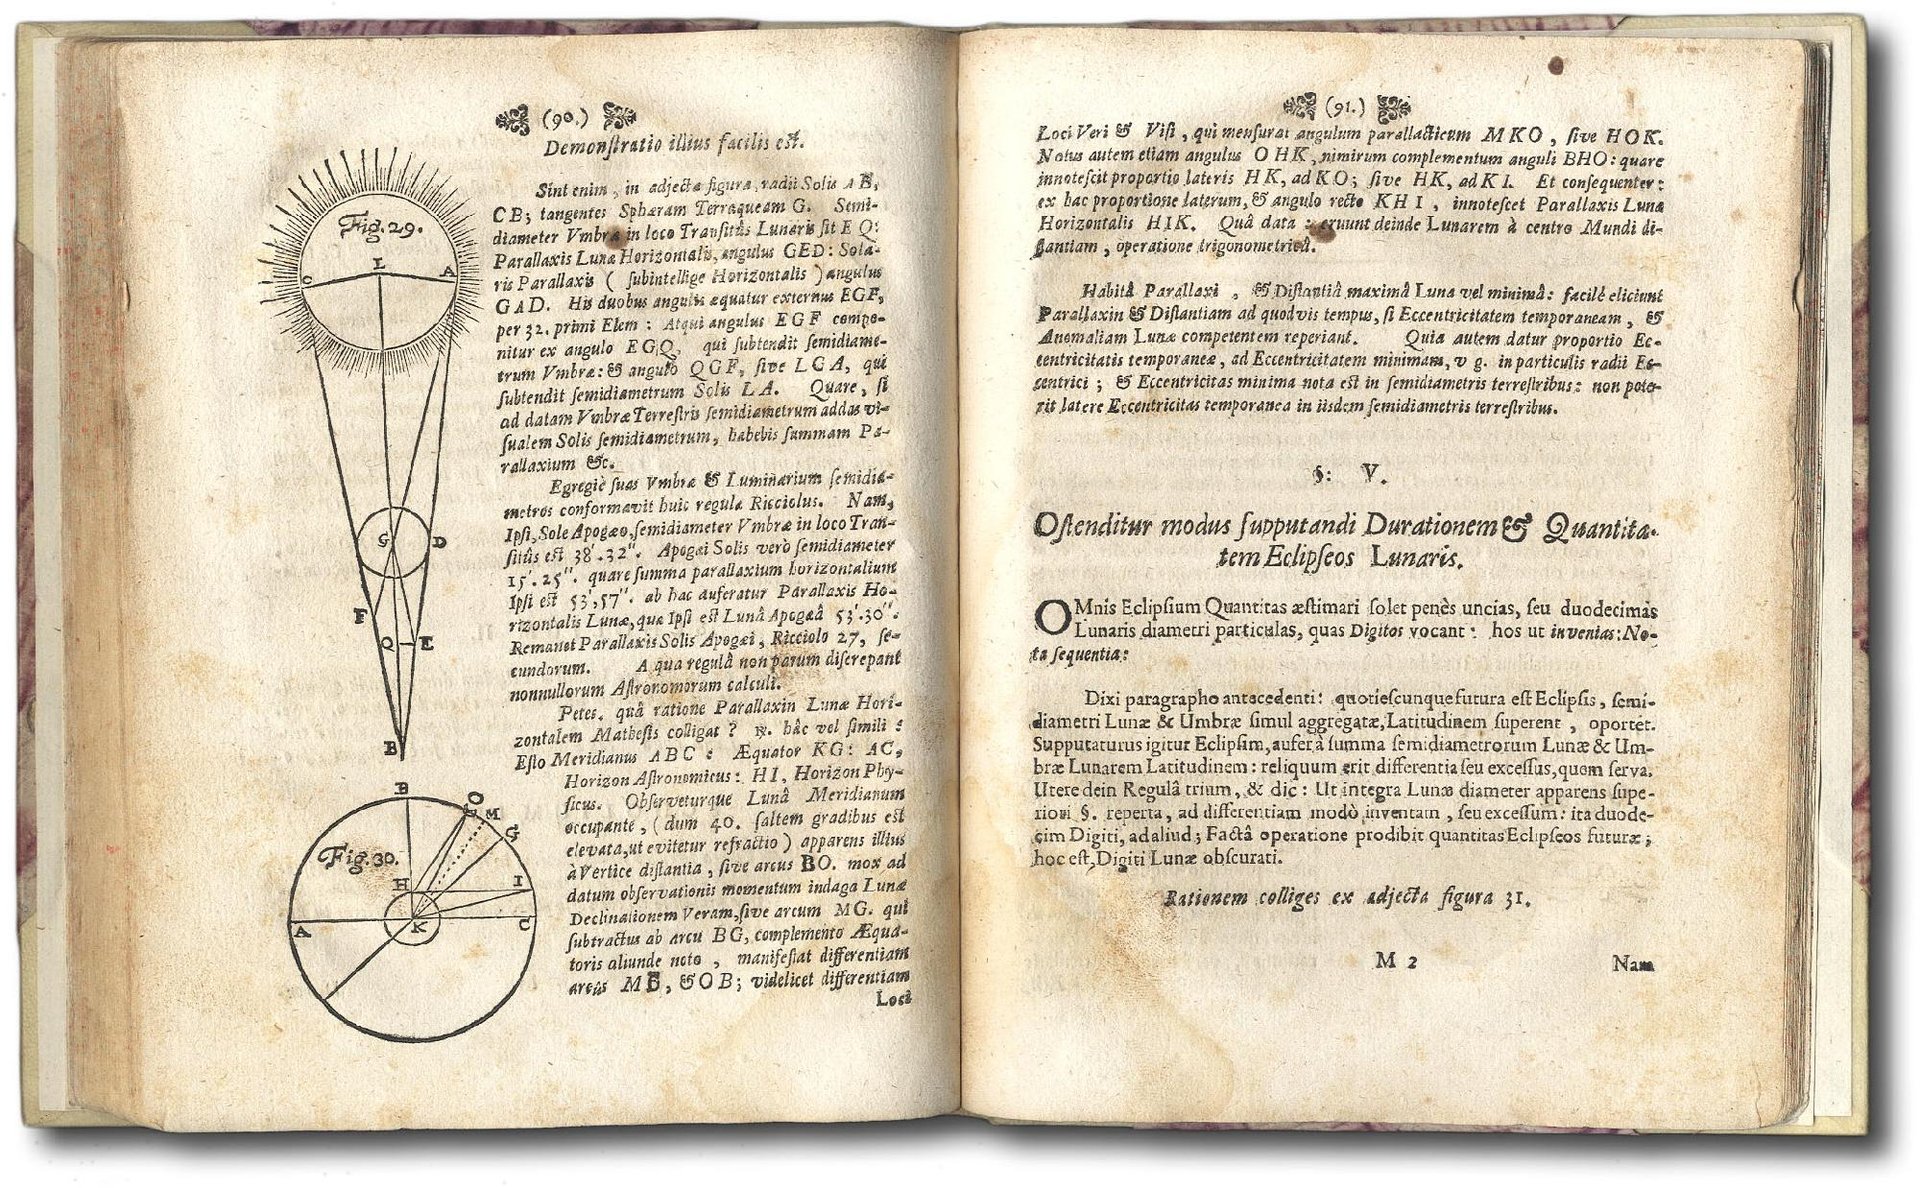 (90.)
Demonſtratio illius facilis eſt.
Fig. 29.
L
C
A
G
D
F
Q
E
B
Sint enim, in adjecta figura, radii Solis AB,
CB; tangentes Sphæram Terraqueam G. Semi-
diameter Vmbræ in loco Transitûs Lunaris ſit EQ:
Parallaxis Lunæ Horizontalis, angulus GED: Sola-
ris Parallaxis (ſubintellige Horizontalis) angulus
GAD. His duobus angulis æquatur externus EGF,
per 32. primi Elem: Atqui angulus EGF compo-
nitur ex angulo EGQ, qui ſubtendit ſemidiame-
trum Vmbræ: & angulo QGF, ſive LGA, qui
ſubtendit ſemidiametrum Solis LA. Quare, ſi
ad datam Vmbræ Terreſtris ſemidiametrum addas vi-
ſualem Solis ſemidiametrum, habebis ſummam Pa-
rallaxium &c.
Egregiè ſuas Vmbræ & Luminarium ſemidia-
metros conformavit huic regulæ Ricciolus. Nam,
Ipſi, Sole Apogæo, ſemidiameter Vmbræ in loco Tran-
ſitûs eſt 38'. 32''. Apogæi Solis verò ſemidiameter
15'. 25''. quare ſumma parallaxium horizontalium
Ipſi eſt 53', 57''. ab hac auferatur Parallaxis Ho-
rizontalis Lunæ, quæ Ipſi eſt Lunâ Apogæâ 53'. 30''.
Remanet Parallaxis Solis Apogæi, Ricciolo 27, ſe-
cundorum. A qua regulâ non parum diſcrepant
nonnullorum Aſtronomorum calculi.
Petes, quâ ratione Parallaxin Lunæ Hori-
zontalem Matheſis colligat? ℟. hâc vel ſimili:
Eſto Meridianus ABC: Æquator KG: AC,
Horizon Aſtronomicus: HI, Horizon Phy-
ſicus. Obſerveturque Lunâ Meridianum
occupante, (dum 40. ſaltem gradibus eſt
elevata, ut evitetur refractio) apparens illius
à Vertice diſtantia, ſive arcus BO. mox ad
datum obſervationis momentum indaga Lunæ
Declinationem Veram, ſive arcum MG. qui
ſubtractus ab arcu BG, complemento Æqua-
toris aliunde noto, manifeſtat differentiam
arcûs MB, & OB; videlicet differentiam
Loci
Fig. 30.
B
O
M
G
H
I
A
K
C
(91.)
Loci Veri & Viſi, qui menſurat angulum parallacticum MKO, ſive HOK.
Notus autem etiam angulus OHK, nimirum complementum anguli BHO: quare
innoteſcit proportio lateris HK, ad KO; ſive HK, ad KI. Et conſequenter:
ex hac proportione laterum, & angulo recto KHI, innoteſcet Parallaxis Lunæ
Horizontalis HIK. Quâ data eruunt deinde Lunarem à centro Mundi di-
ſtantiam, operatione trigonometricâ.
Habitâ Parallaxi, & Diſtantiâ maximâ Lunæ vel minimâ: facilè eliciunt
Parallaxin & Diſtantiam ad quodvis tempus, ſi Eccentricitatem temporaneam, &
Anomaliam Lunæ competentem reperiant. Quia autem datur proportio Ec-
centricitatis temporaneæ, ad Eccentricitatem minimam, v g. in particulis radii Ec-
centrici; & Eccentricitas minima nota eſt in ſemidiametris terreſtribus: non pote-
rit latere Eccentricitas temporanea in iisdem ſemidiametris terreſtribus.
§: V.
Oſtenditur modus ſupputandi Durationem & Quantita-
tem Eclipſeos Lunaris.
OMnis Eclipſium Quantitas æſtimari ſolet penès uncias, ſeu duodecimas
Lunaris diametri particulas, quas Digitos vocant: hos ut invenias: No-
ta ſequentia:
Dixi paragrapho antecedenti: quotieſcunque futura eſt Eclipſis, ſemi-
diametri Lunæ & Umbræ ſimul aggregatæ, Latitudinem ſuperent, oportet.
Supputaturus igitur Eclipſim, aufer à ſumma ſemidiametrorum Lunæ & Um-
bræ Lunarem Latitudinem: reliquum erit differentia ſeu exceſſus, quem ſerva.
Utere dein Regulâ trium, & dic: Ut integra Lunæ diameter apparens ſupe-
riori §. reperta, ad differentiam modò inventam, ſeu exceſſum: ita duode-
cim Digiti, ad aliud; Factâ operatione prodibit quantitas Eclipſeos futuræ;
hoc eſt, Digiti Lunæ obſcurati.
Rationem colliges ex adjecta figura 31.
M 2
Nam